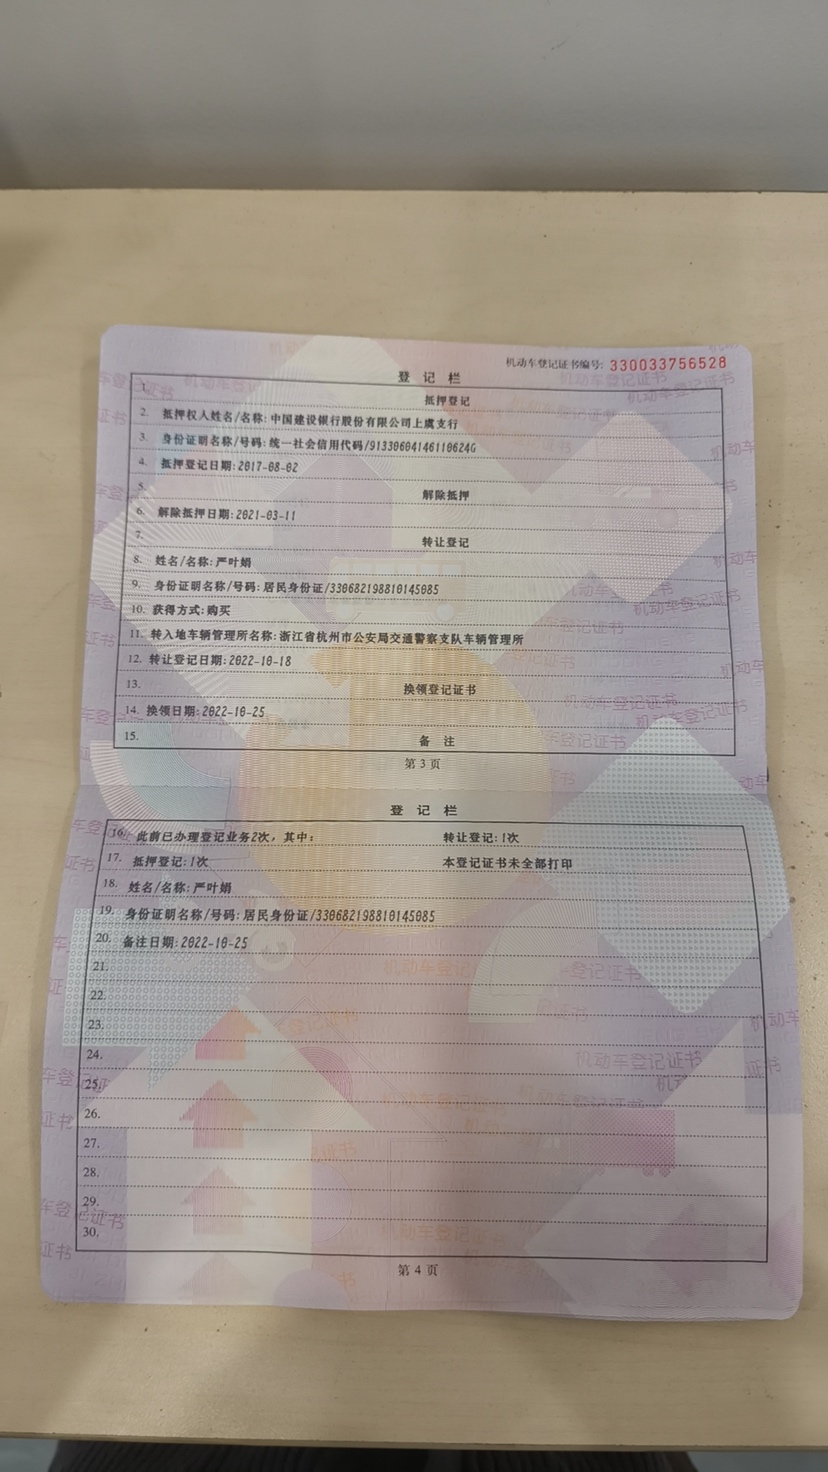 机动车登记证书编号: 330033756528
登 记 栏
1. 抵押登记
2. 抵押权人姓名/名称:中国建设银行股份有限公司上虞支行
3. 身份证明名称/号码:统一社会信用代码/91330604146110624G
4. 抵押登记日期:2017-08-02
5. 解除抵押
6. 解除抵押日期:2021-03-11
7. 转让登记
8. 姓名/名称:严叶娟
9. 身份证明名称/号码:居民身份证/330682198810145085
10. 获得方式:购买
11. 转入地车辆管理所名称:浙江省杭州市公安局交通警察支队车辆管理所
12. 转让登记日期:2022-10-18
13. 换领登记证书
14. 换领日期:2022-10-25
15. 备 注
第 3 页
登 记 栏
16. 此前已办理登记业务2次，其中: 转让登记:1次
17. 抵押登记:1次 本登记证书未全部打印
18. 姓名/名称:严叶娟
19. 身份证明名称/号码:居民身份证/330682198810145085
20. 备注日期:2022-10-25
21.
22.
23.
24.
25.
26.
27.
28.
29.
30.
第 4 页